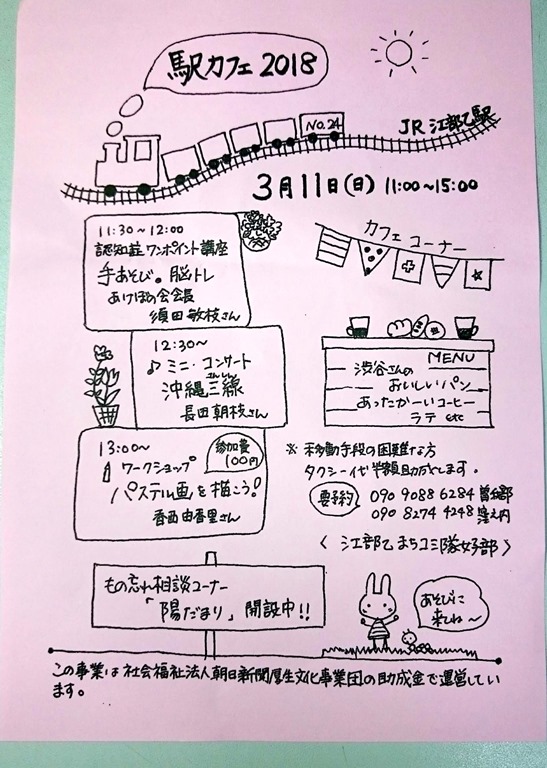 駅カフェ 2018
No.24
JR 江部乙駅
3月11日(日) 11:00〜15:00
11:30〜12:00
認知症ワンポイント講座
手あそび。脳トレ
あけぼの会会長
須田敏枝さん
12:30〜
♪ミニ・コンサート
さんしん
沖縄三線
長田朝枝さん
13:00〜
参加費
100円
ワークショップ
パステル画を描こう!
香西由香里さん
カフェコーナー
MENU
渋谷さんの
おいしいパン
あったかーいコーヒー
ラテ etc
※ 移動手段の困難な方
タクシー代半額助成します。
要予約
090 9088 6284
090 8274 4248 窪之内
〈 江部乙まちコミ隊女子部 〉
もの忘れ相談コーナー
「陽だまり」開設中!!
あそびに
来てね〜
この事業は社会福祉法人朝日新聞厚生文化事業団の助成金で運営してい
ます。